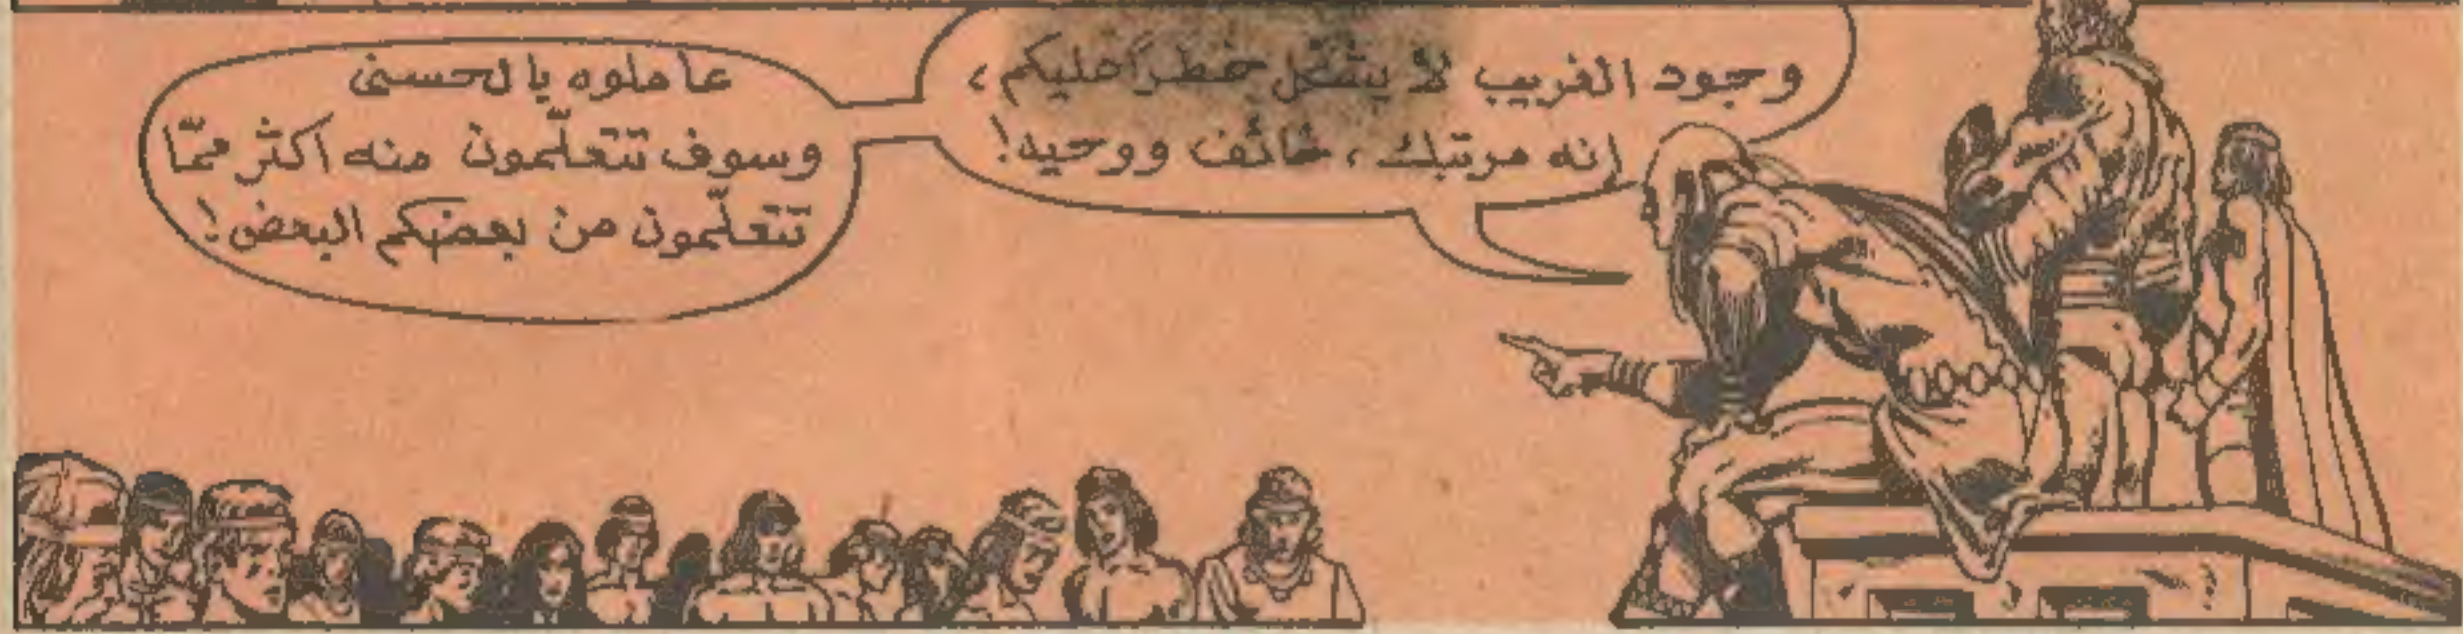 وجود الغريب لا يشكل خطراً عليكم،
إنه مرتبك، خائف ووحيد!
عاملوه بالحسنى
وسوف تتعلّمون منه أكثر ممّا
تتعلّمون من بعضكم البعض!